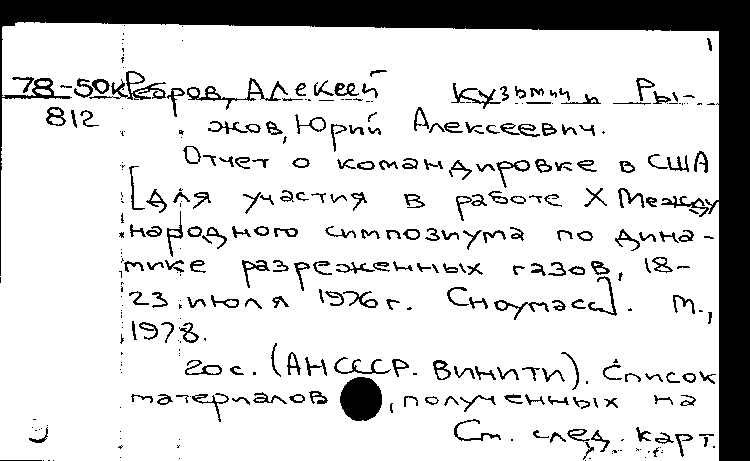 1
78-50к Ребров, Алексей Кузьмич и Ры-
812 жов, Юрий Алексеевич.
Отчет о командировке в США
[для участия в работе X Между
народного симпозиума по дина-
мике разреженных газов, 18-
23 июля 1976 г. Сноумасс]. М.,
1978.
20 с. (АН СССР. ВИНИТИ). Список
материалов , полученных на
См. след. карт.